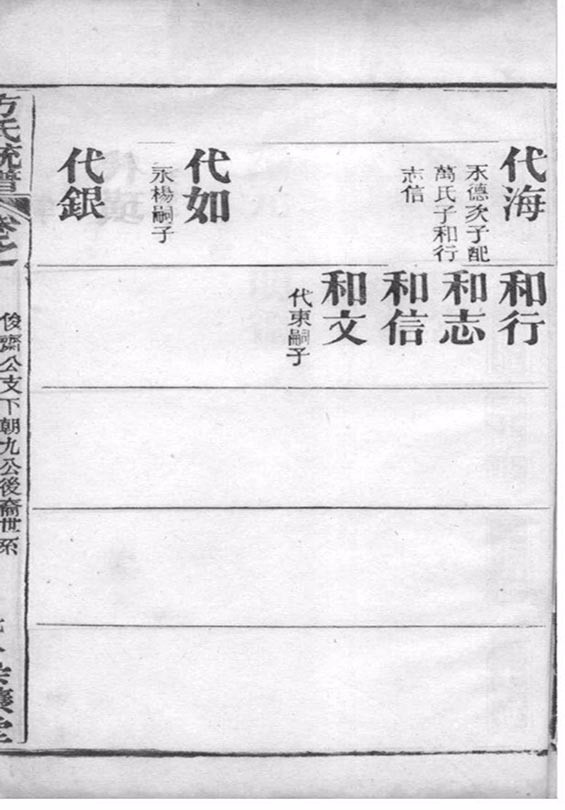 代海
永德次子配
萬氏子和行
志信
代如
永楊嗣子
代銀
和行
和志
和信
和文
代東嗣子
方氏統譜
卷之一
俊齋公支下朝九公後裔世系